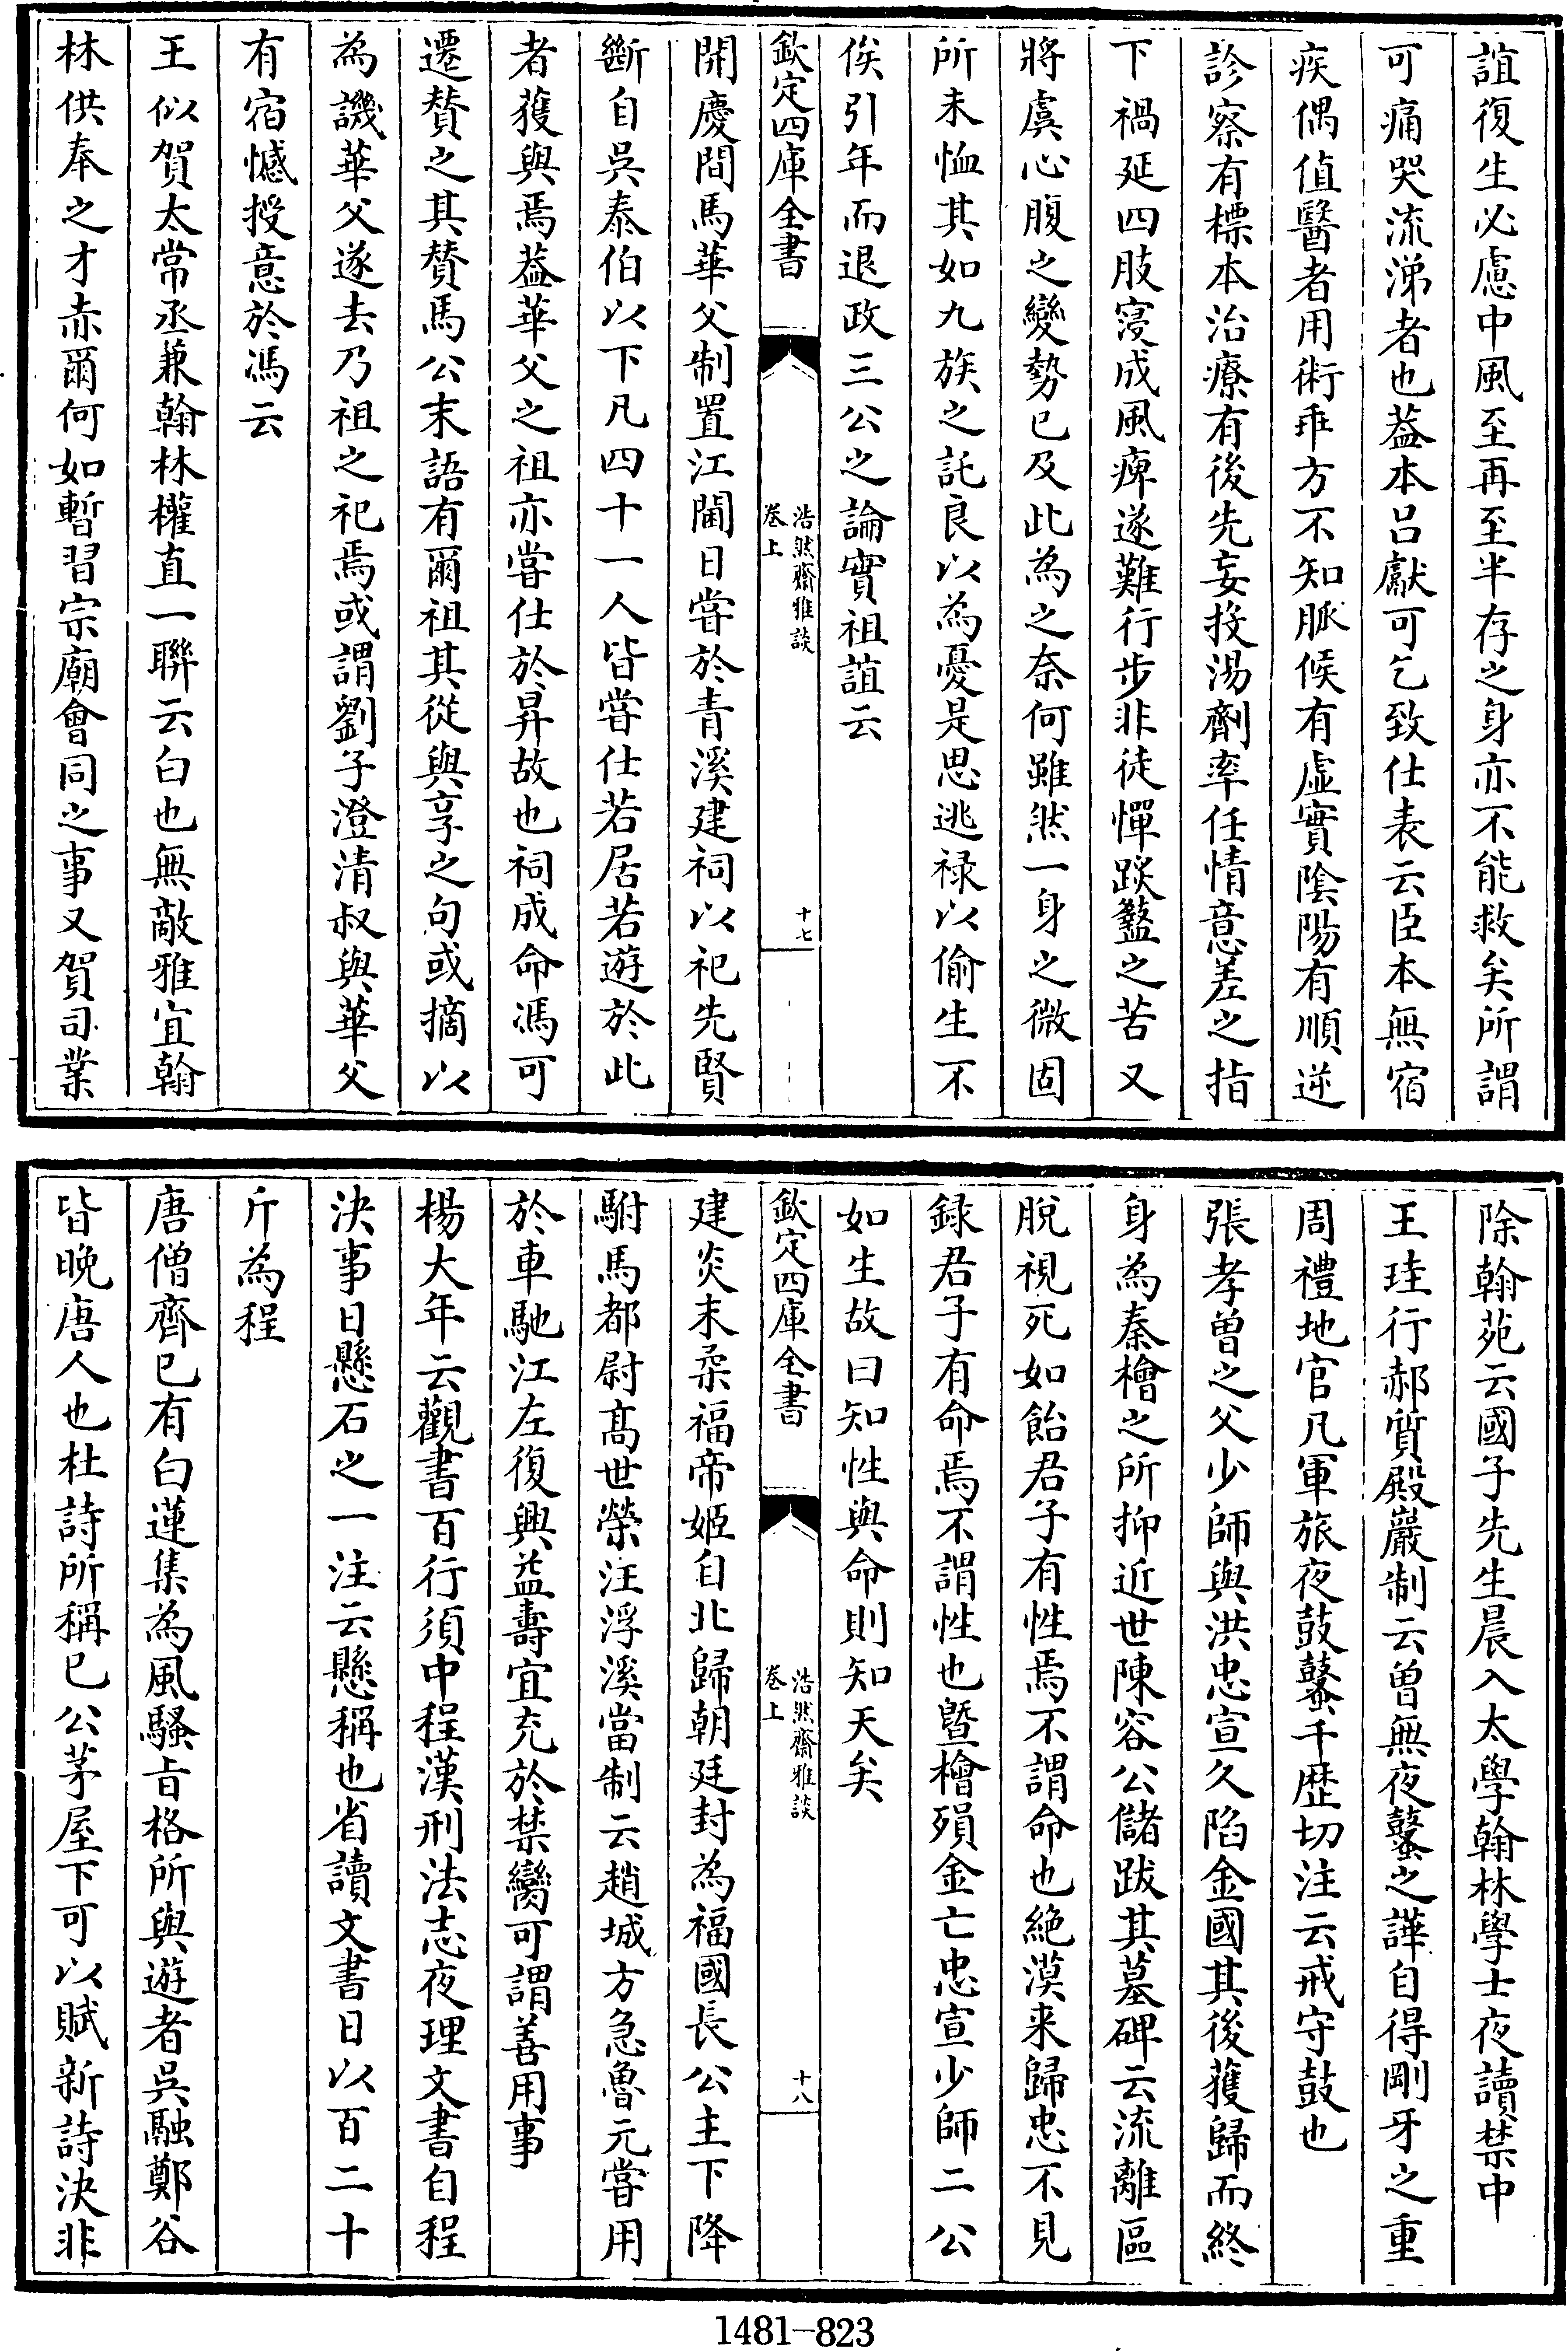 誼復生必慮中風至再至半存之身亦不能救矣所謂
可痛哭流涕者也葢本呂獻可乞致仕表云臣本無宿
疾偶值醫者用術乖方不知脈候有虛實陰陽有順逆
診察有標本治療有後先妄投湯劑率任情意差之指
下禍延四肢寖成風痺遂難行步非徒憚跋盭之苦又
將虞心腹之變勢已及此為之奈何雖然一身之微固
所未恤其如九族之託良以為憂是思逃禄以偷生不
俟引年而退政三公之論實祖誼云
欽定四庫全書
浩然齋雅談
卷上
十七
開慶間馬華父制置江閫日嘗於青溪建祠以祀先賢
斷自吳泰伯以下凡四十一人皆嘗仕若居若遊於此
者獲與焉葢華父之祖亦嘗仕於昇故也祠成命馮可
遷贊之其贊馬公末語有爾祖其從與享之句或摘以
為譏華父遂去乃祖之祀焉或謂劉子澄清叔與華父
有宿憾授意於馮云
王似賀太常丞兼翰林權直一聯云白也無敵雅宜翰
林供奉之才赤爾何如暫習宗廟會同之事又賀司業
除翰苑云國子先生晨入太學翰林學士夜讀禁中
王珪行郝質殿嚴制云曽無夜鼜之譁自得剛牙之重
周禮地官凡軍旅夜鼓鼜千歷切注云戒守鼓也
張孝曽之父少師與洪忠宣久陷金國其後獲歸而終
身為秦檜之所抑近世陳容公儲跋其墓碑云流離區
脫視死如飴君子有性焉不謂命也絶漠来歸忠不見
録君子有命焉不謂性也曁檜殞金亡忠宣少師二公
如生故曰知性與命則知天矣
欽定四庫全書
浩然齋雅談
卷上
十八
建炎末柔福帝姬自北歸朝廷封為福國長公主下降
駙馬都尉髙世榮汪浮溪當制云趙城方急魯元嘗用
於車馳江左復興益壽宜充於禁臠可謂善用事
楊大年云觀書百行須中程漢刑法志夜理文書自程
決事日懸石之一注云懸稱也省讀文書日以百二十
斤為程
唐僧齊已有白蓮集為風騷旨格所與遊者吳融鄭谷
皆晚唐人也杜詩所稱已公茅屋下可以賦新詩決非
1481-823